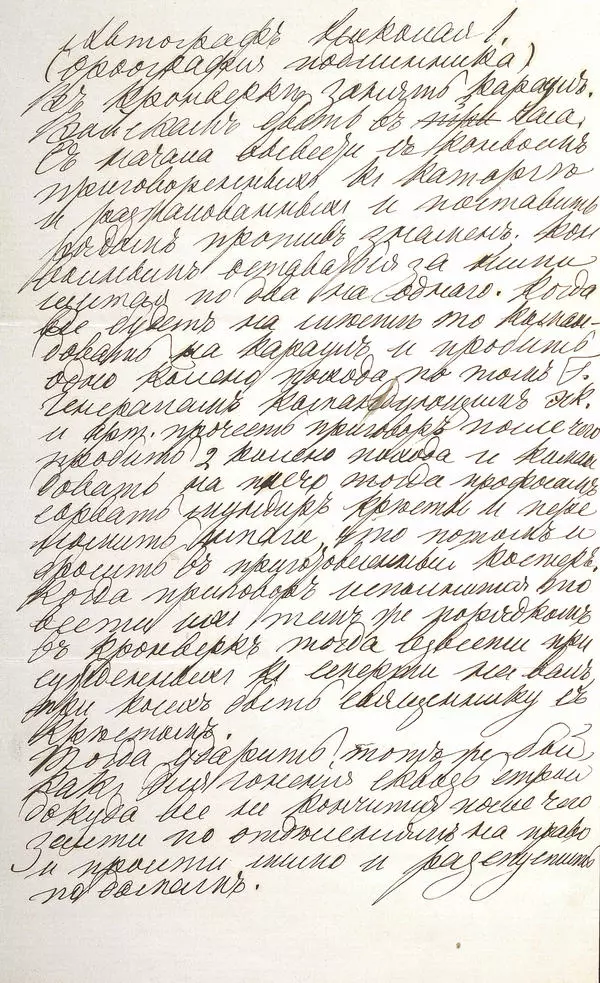 Автографъ Николая I.
(орѳографія подлинника)
Въ кронверкѣ занять караулъ.
Войскамъ быть въ три часа.
Съ начала вывести съ конвоемъ
приговоренныхъ къ каторгѣ
и разжалованныхъ и поставить
рядомъ противъ знаменъ. Кон
войнымъ оставаться за ними
щитая по два на однаго. Когда
все будетъ на мѣстѣ то коман-
довать на караулъ и пробить
одно колено похода по томъ Г.
Генераламъ командующимъ эск.
и арт. прочесть приговоръ после чего
пробить 2 колено похода и коман
довать на плечо тогда профосамъ
сорвать мундиръ кресты и пере
ломить шпаги, что потомъ и
бросить въ приготовленный костеръ.
Когда приговоръ исполнится то
вести ихъ темъ же порядкомъ
въ кронверкъ тогда взвести при
сужденныхъ къ смерти на валъ
при коихъ быть священнику съ
крестомъ.
Тогда ударить тотъ же бой,
какъ для гонения сквозь строй
докуда все не кончится после чего
зайти по отделениямъ на право
и пройти мимо и распустить
по домамъ.